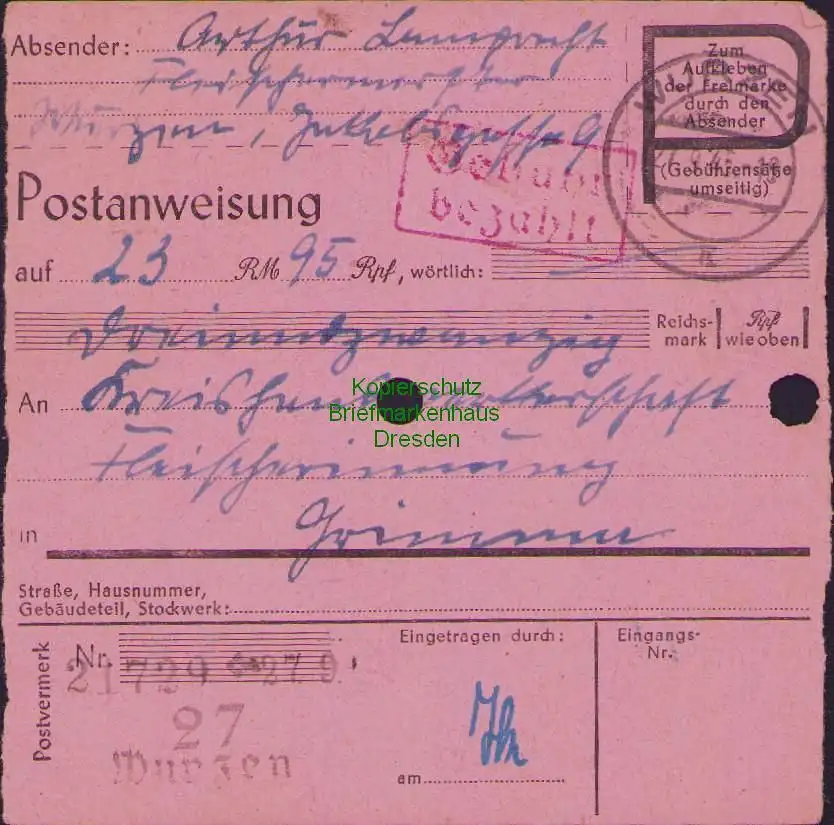 Absender: Arthur Lamprecht
Fleischermeister
Wurzen, 9
Zum
Aufkleben
der Freimarke
durch den
Absender
(Gebührensätze
umseitig)
WURZEN
Gebühr
bezahlt
Postanweisung
auf 23 RM 95 Rpf, wörtlich:
dreiundzwanzig
Reichs-
mark
Rpf
wie oben
An Kreishandwerkerschaft
Kopierschutz
Briefmarkenhaus
Dresden
Fleischerinnung
in Grimma
Straße, Hausnummer,
Gebäudeteil, Stockwerk:
Postvermerk
Nr.
21729 279
27
Wurzen
Eingetragen durch:
am
Eingangs-
Nr.